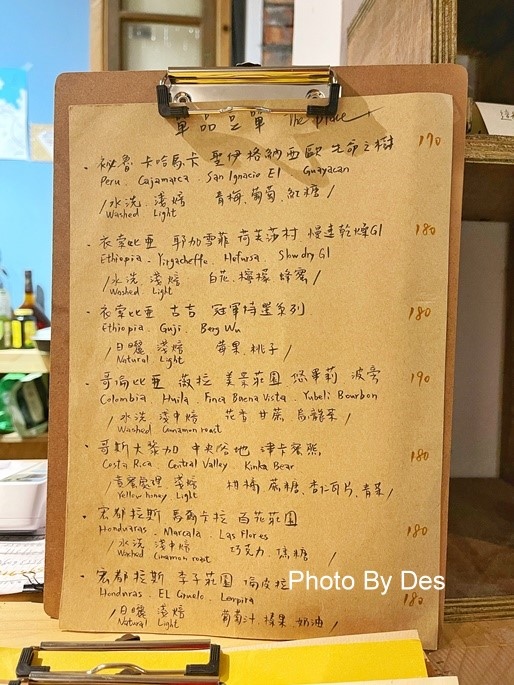 單品豆單 The place
· 秘魯 卡哈馬卡 聖伊格納西歐 生命之樹 170
Peru. Cajamarca. San Ignacio El Guayacan
/水洗. 淺焙 青梅. 葡萄. 紅糖/
Washed Light
· 衣索比亞 耶加雪菲 荷芙莎村 慢速乾燥G1 180
Ethiopia. Yirgacheffe. Hofursa. Slow dry G1
/水洗. 淺焙 白花. 檸檬 蜂蜜/
Washed. Light
· 衣索比亞 古吉 冠軍特星系列 180
Ethiopia. Guji. Beng Wu
/日曬 淺焙 莓果. 桃子/
Natural. Light
· 哥倫比亞 薇拉 美景莊園 悠畢莉 波旁 190
Colombia. Huila. Finca Buena Vista. Yubeli Bourbon
/水洗 淺中焙 花香 甘蔗 烏龍茶/
Washed Cinnamon roast
· 哥斯大黎加 中央谷地 津卡 180
Costa Rica. Central Valley. Kinka Bear
/黃蜜處理 淺焙 柑橘. 蔗糖. 杏仁瓦片. 青茶/
Yellow honey. Light
· 宏都拉斯. 馬爾卡拉 百花莊園 180
Honduras. Marcala. Las Flores
/水洗 淺中焙 巧克力. 焦糖/
Washed Cinnamon roast
· 宏都拉斯 李子莊園 倫皮拉 180
Honduras. EL Ciruelo. Lempira
/日曬 淺焙 葡萄汁. 榛果 奶油/
Natural Light
Photo By Des